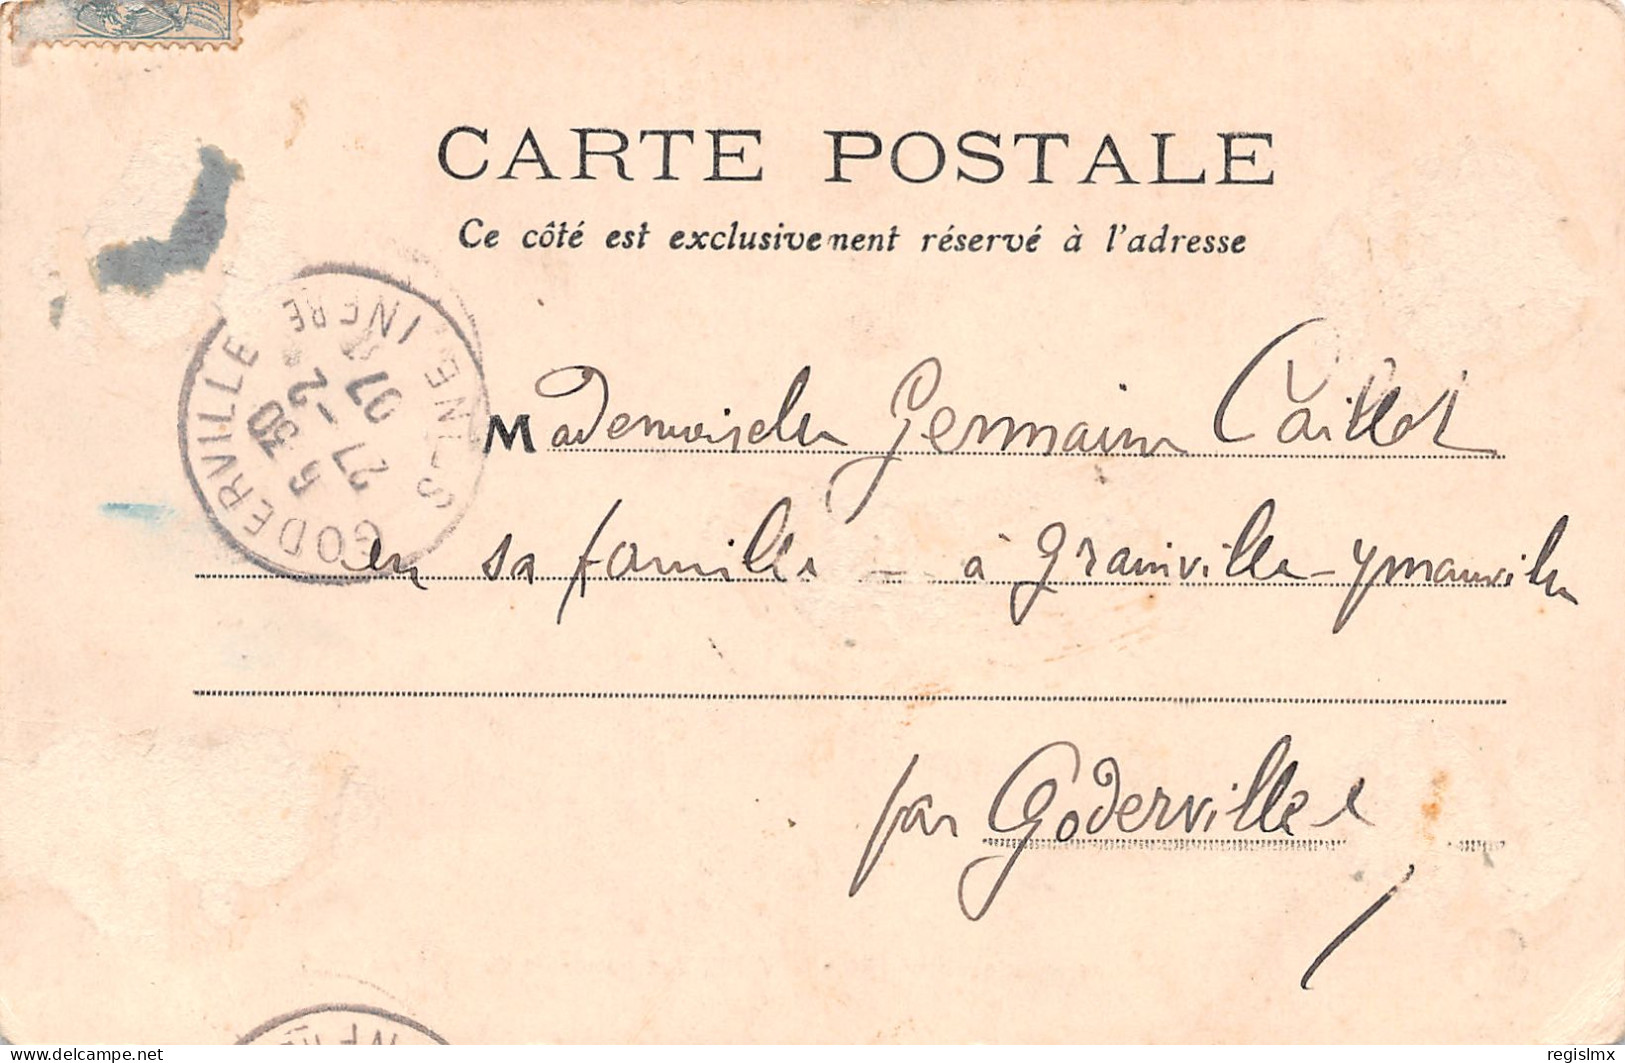 CARTE POSTALE
Ce côté est exclusivement réservé à l'adresse
GODERVILLE
SNE INFRE
5 30
27 -2
07
Mademoiselle Germaine Caillot
en sa famille – à Grainville-Ymauville
par Goderville
delcampe.net
regislmx